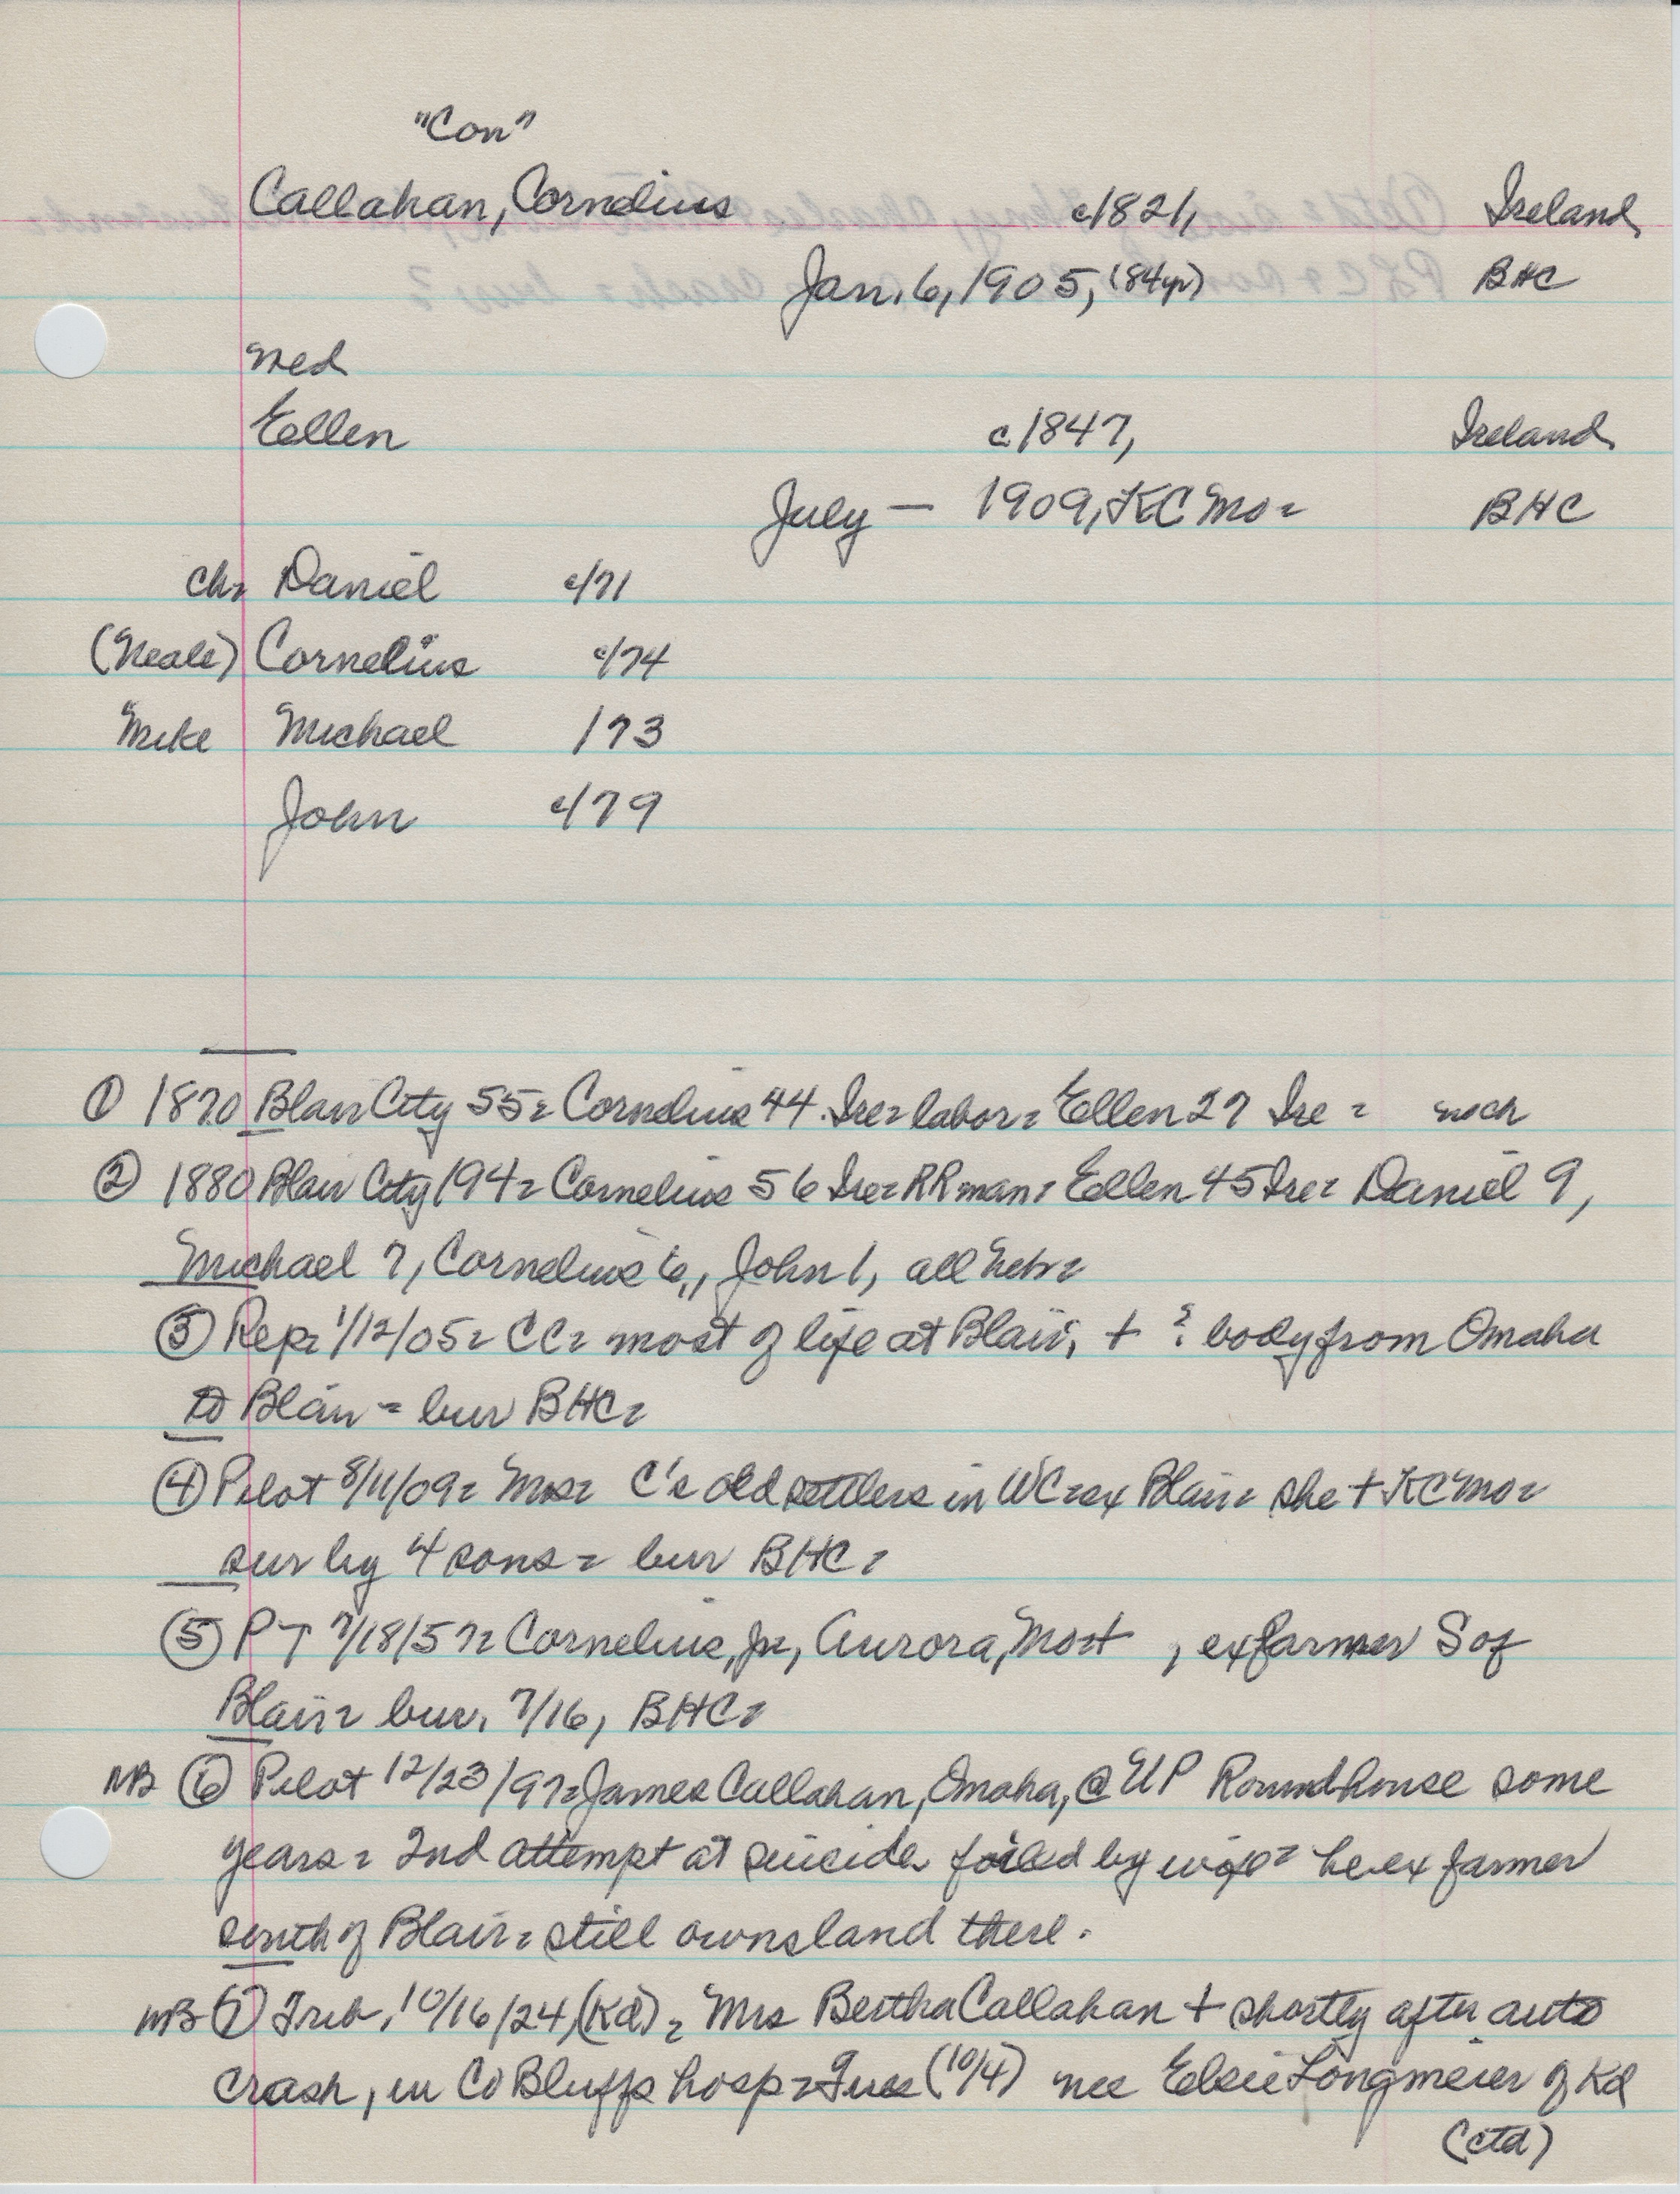 "Con"
Callahan, Cornelius c1821, Ireland
Jan. 6, 1905, (84yr) BHC
med
Ellen c1847, Ireland
July — 1909, KC Mo = BHC
ch= Daniel c/71
(Neale) Cornelius c/74
Mike Michael /73
John c/79
① 1870 Blair City 55= Cornelius 44 Ire= labor= Ellen 27 Ire = noch
② 1880 Blair City 194= Cornelius 56 Ire= RR man= Ellen 45 Ire= Daniel 9,
Michael 7, Cornelius 6, John 1, all Neb=
③ Rep= 1/12/05= CC= most of life at Blair, + ? body from Omaha
to Blair = bur BHC=
④ Pilot 8/11/09= Mrs= C's old settlers in WC= ex Blair= she + KC Mo=
sur by 4 sons = bur BHC=
⑤ PT 7/18/57= Cornelius, Jr, Aurora, Mo+ , ex farmer S of
Blair= bur. 7/16, BHC=
NB ⑥ Pilot 12/23/97= James Callahan, Omaha, @ UP Roundhouse some
years = 2nd attempt at suicide foiled by wife= he ex farmer
south of Blair= still owns land there.
NB ⑦ Trib, 10/16/24, (Kd) = Mrs Bertha Callahan + shortly after auto
crash, in Co Bluffs hosp= Tues (10/4) nee Elsie Longmeier of Kd
(ctd)